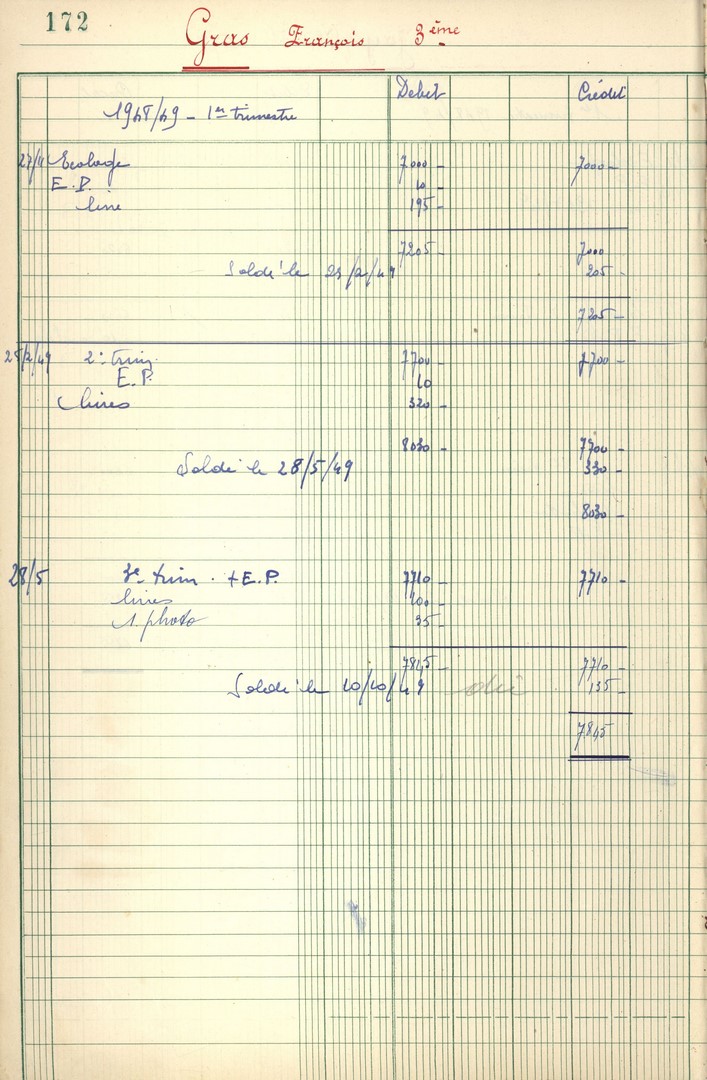 172
Gras François 3ème
Debet Crédit
1948/49 - 1er trimestre
27/11 Ecolage 7000 - 7000 -
E.P. 10 -
livre 195 -
7205 - 7000
Soldé le 205 -
7205 -
25/2/49 2e trim. 7700 - 7700 -
E.P. 10
livres 320 -
8030 - 7700 -
Soldé le 28/5/49 330 -
8030 -
28/5 3e trim. + E.P. 7710 - 7710 -
livres 100 -
1 photo 35 -
7845 - 7710 -
Soldé le 10/10/49 dû 135 -
7845